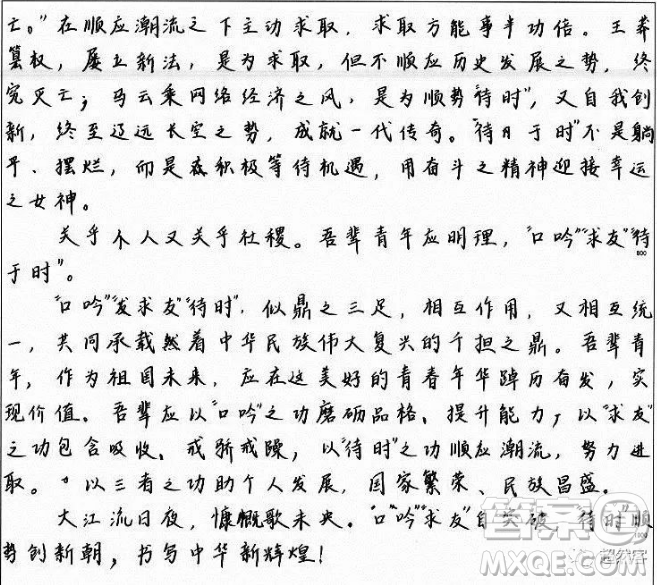 亡。"在顺应潮流之下主动求取，求取方能事半功倍。王莽
篡权，屡立新法，是为求取，但不顺应历史发展之势，终
究灭亡；马云乘网络经济之风，是为顺势"待时"，又自我创
新，终至辽远长空之势，成就一代传奇。"待月于时"不是躺
平、摆烂，而是在积极等待机遇，用奋斗之精神迎接幸运
之女神。
关乎个人又关乎社稷。吾辈青年应明理，"口吟""求友""待
800
于时"。
"口吟""求友""待时"，似鼎之三足，相互作用，又相互统
一，共同承载着中华民族伟大复兴的千担之鼎。吾辈青
年，作为祖国未来，应在这美好的青春年华踔厉奋发，实
现价值。吾辈应以"口吟"之功磨砺品格、提升能力，以"求友"
之功包含吸收、戒骄戒躁，以"待时"之功顺应潮流，努力进
取。以三者之功助个人发展，国家繁荣、民族昌盛。
大江流日夜，慷慨歌未央。"口吟""求友"自突破，"待时"顺
势创新朝，书写中华新辉煌！
答案圈
MXQE.COM
超然客